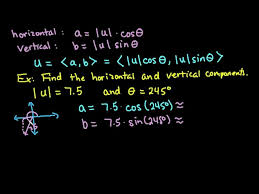 horizontal : a = |u| · cosθ
vertical : b = |u| sinθ
u = <a,b> = <|u|cosθ, |u|sinθ>
Ex: Find the horizontal and vertical components.
|u| = 7.5 and θ = 245°
a = 7.5 · cos(245°) ≈
b = 7.5 · sin(245°) ≈